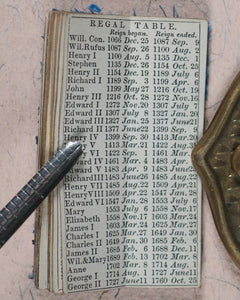 REGAL TABLE.
Reign began. Reign ended.
Will. Con. 1066 Dec. 25 1087 Sep. 9
Wil. Rufus 1087 Sep. 26 1100 Aug. 2
Henry I 1100 Aug. 5 1135 Dec. 1
Stephen 1135 Dec. 26 1154 Oct. 25
Henry II 1154 Dec. 19 1189 July 6
Richard I 1189 Sep. 3 1199 Apr. 6
John 1199 May 27 1216 Oct. 19
Henry III 1216 Oct. 28 1272 Nov. 16
Edward I 1272 Nov. 20 1307 July 7
Edward II 1307 July 8 1327 Jan. 20
Edward III 1327 Jan. 25 1377 June 21
Richard II 1377 June 22 1399 Sep.
Henry IV 1399 Sep. 30 1413 Mar. 20
V 1413 Mar. 21 1422 Aug. 31
VI 1422 Sep. 1 1461 Mar.
Edward IV 1461 Mar. 4 1483 Apr.
Edward V 1483 Apr. 9 1483 June
Richard III 1483 June 26 1485 Aug. 22
Henry VII 1485 Aug. 22 1509 Apr. 21
Henry VIII 1509 Apr. 22 1547 Jan. 28
Edward VI 1547 Jan. 28 1553 July 6
Mary 1553 July 6 1558 Nov. 17
Elizabeth 1558 Nov. 17 1603 Mar. 24
James I 1603 Mar. 24 1625 Mar. 27
Charles I 1625 Mar. 27 1649 Jan. 30
Charles II 1649 Jan. 30 1685 Feb. 6
James II 1685 Feb. 6 1688 Dec. 11
Wil. & Mary 1689 Feb. 13 1702 Mar. 8
Anne 1702 Mar. 8 1714 Aug. 1
George I 1714 Aug. 1 1727 June 11
George II 1727 June 11 1760 Oct. 25